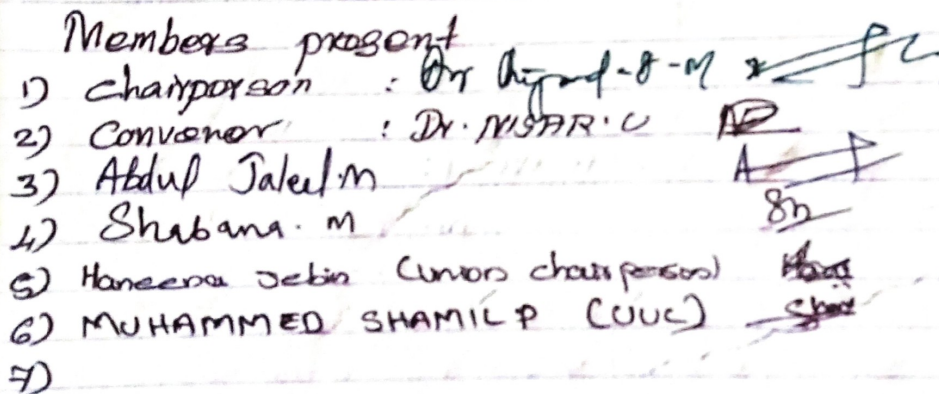 Members present
1) Chairperson : Dr
2) Convenor : Dr. NISAR. U
3) Abdul Jaleel. M
4) Shabana. M
5) Haneena Jebin (Union chairperson)
6) MUHAMMED SHAMIL P (UUC)
7)